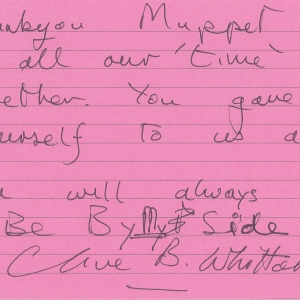 nkyou Muppet
all our 'time'
ether. You gave
urself to us a
will always
Be By My Side
Clive B. Whitta